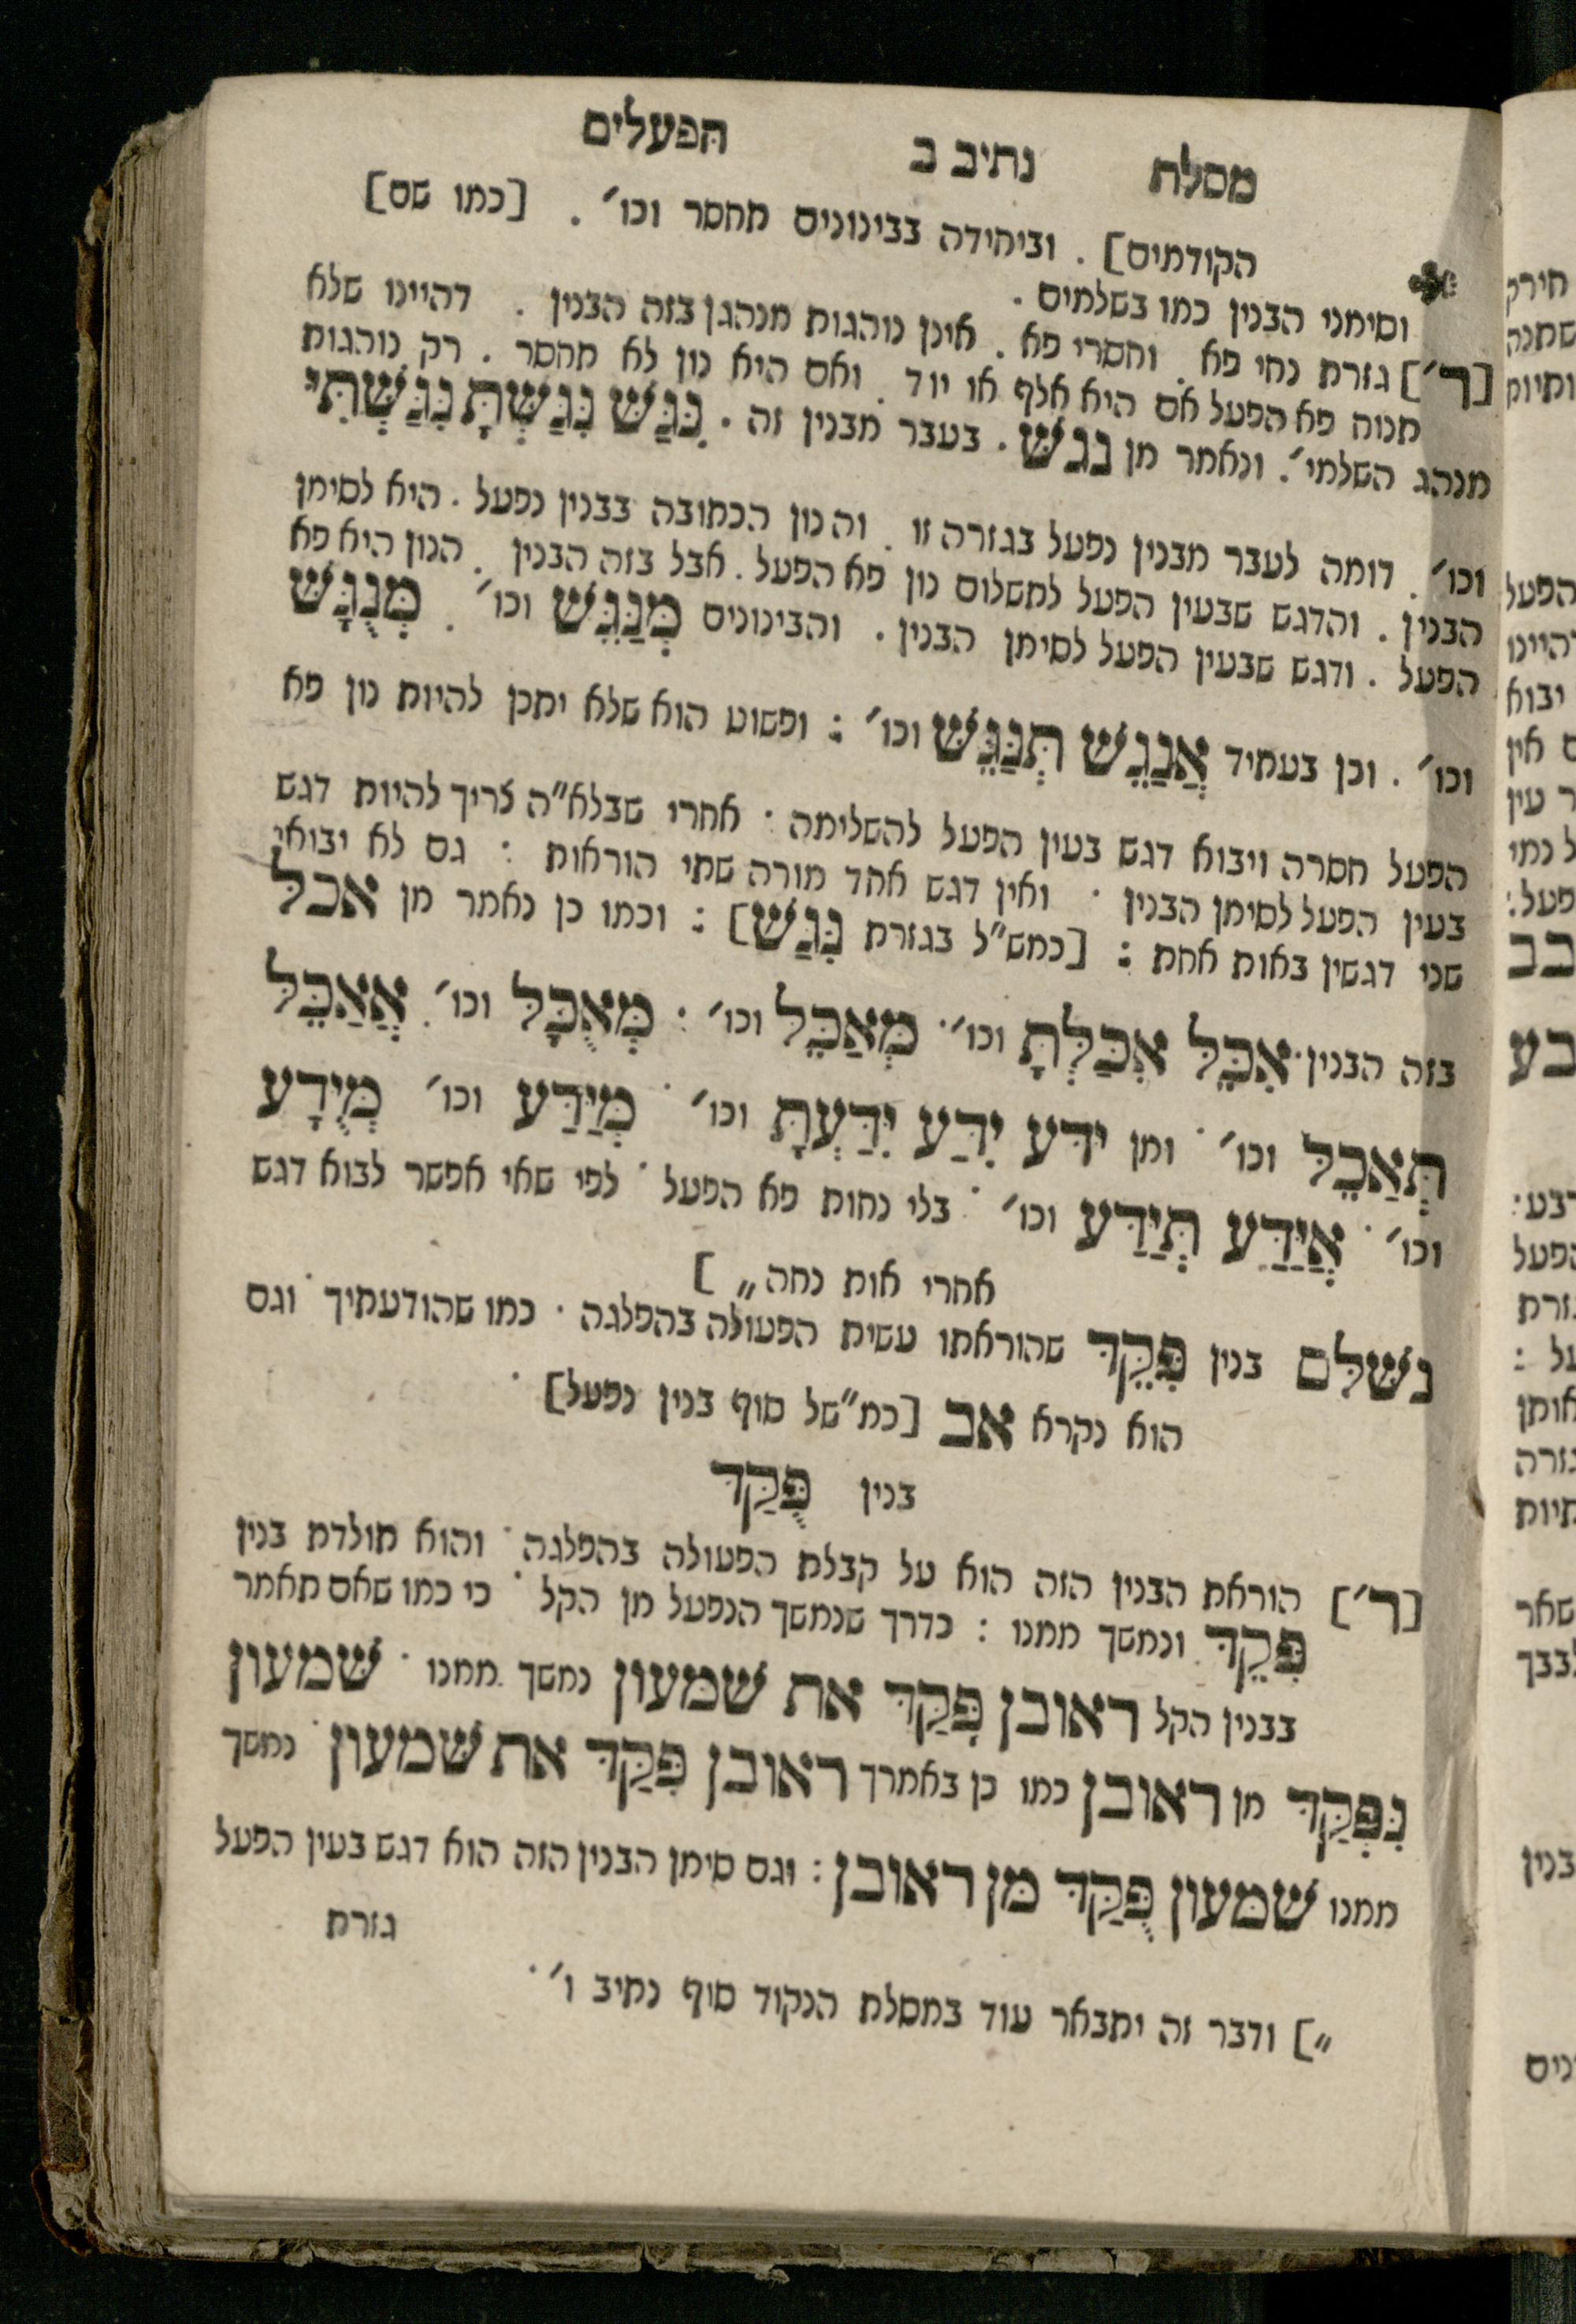 מסלת נתיב ב הפעלים
הקודמים] . וביחידה בבינונים תחסר וכו׳ . [כמו שם]
וסימני הבנין כמו בשלמים .
[ר׳] גזרת נחי פא . וחסרי פא . אינן נוהגות מנהגן בזה הבנין . דהיינו שלא
תנוח פא הפעל אם היא אלף או יוד . ואם היא נון לא תחסר . רק נוהגות
מנהג השלמי׳ . ונאמר מן נגש . בעבר מבנין זה . נִגַּשׁ נִגַּשְׁתָּ נִגַּשְׁתִּי
וכו׳ . דומה לעבר מבנין נפעל בגזרה זו . והנון הכתובה בבנין נפעל . היא לסימן
הבנין . והדגש שבעין הפעל לתשלום נון פא הפעל . אבל בזה הבנין . הנון היא פא
הפעל . ודגש שבעין הפעל לסימן הבנין . והבינונים מְנַגֵּשׁ וכו׳ . מְנֻגָּשׁ
וכו׳ . וכן בעתיד אֲנַגֵּשׁ תְּנַגֵּשׁ וכו׳ : ופשוט הוא שלא יתכן להיות נון פא
הפעל חסרה ויבוא דגש בעין הפעל להשלימה · אחרי שבלא״ה צריך להיות דגש
בעין הפעל לסימן הבנין · ואין דגש אחד מורה שתי הוראות : גם לא יבואי
שני דגשין באות אחת : [כמש״ל בגזרת נִגַּשׁ] : וכמו כן נאמר מן אכל
בזה הבנין · אִכֵּל אִכַּלְתָּ וכו׳ · מְאַכֵּל וכו׳ : מְאֻכָּל וכו׳ . אֲאַכֵּל
תְּאַכֵּל וכו׳ · ומן ידע יִדַּע יִדַּעְתָּ וכו׳ · מְיַדַּע וכו׳ מְיֻדָּע
וכו׳ · אֲיַדַּע תְּיַדַּע וכו׳ · בלי נחות פא הפעל · לפי שאי אפשר לבוא דגש
אחרי אות נחה ״]
נשלם בנין פִּקֵּד שהוראתו עשית הפעולה בהפלגה · כמו שהודעתיך · וגם
הוא נקרא אב [כמ״של סוף בנין נפעל] ·
בנין פֻּקַּד
[ר׳] הוראת הבנין הזה הוא על קבלת הפעולה בהפלגה · והוא תולדת בנין
פִּקֵּד ונמשך ממנו : כדרך שנמשך הנפעל מן הקל · כי כמו שאם תאמר
בבנין הקל ראובן פָּקַד את שמעון נמשך ממנו · שמעון
נִפְקַד מן ראובן כמו כן באמרך ראובן פִּקַּד את שמעון · נמשך
ממנו שמעון פֻּקַּד מן ראובן : וגם סימן הבנין הזה הוא דגש בעין הפעל
גזרת
״] ודבר זה יתבאר עוד במסלת הנקוד סוף נתיב ו׳ ·